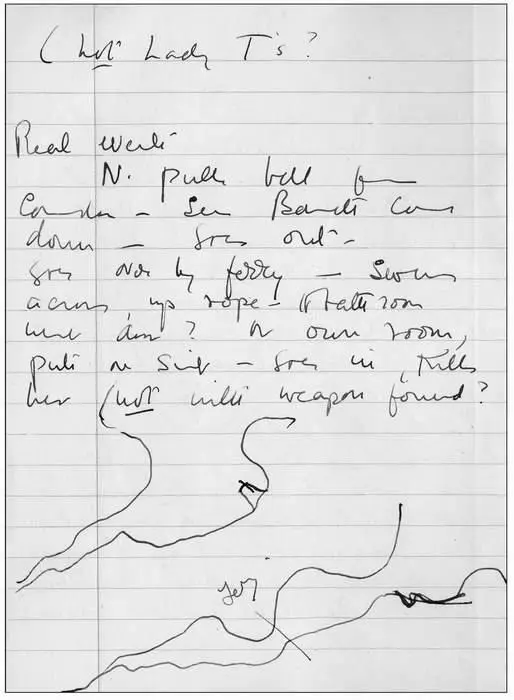 ( not Lady T's?
Real events
N. pulls bell from
Corridor – Sees Barrett come
down – goes out –
goes over by ferry – Swims
across, up rope – Bathroom
next door? or own room,
puts on Suit – goes in, kills
her (not with weapon found?
ferry